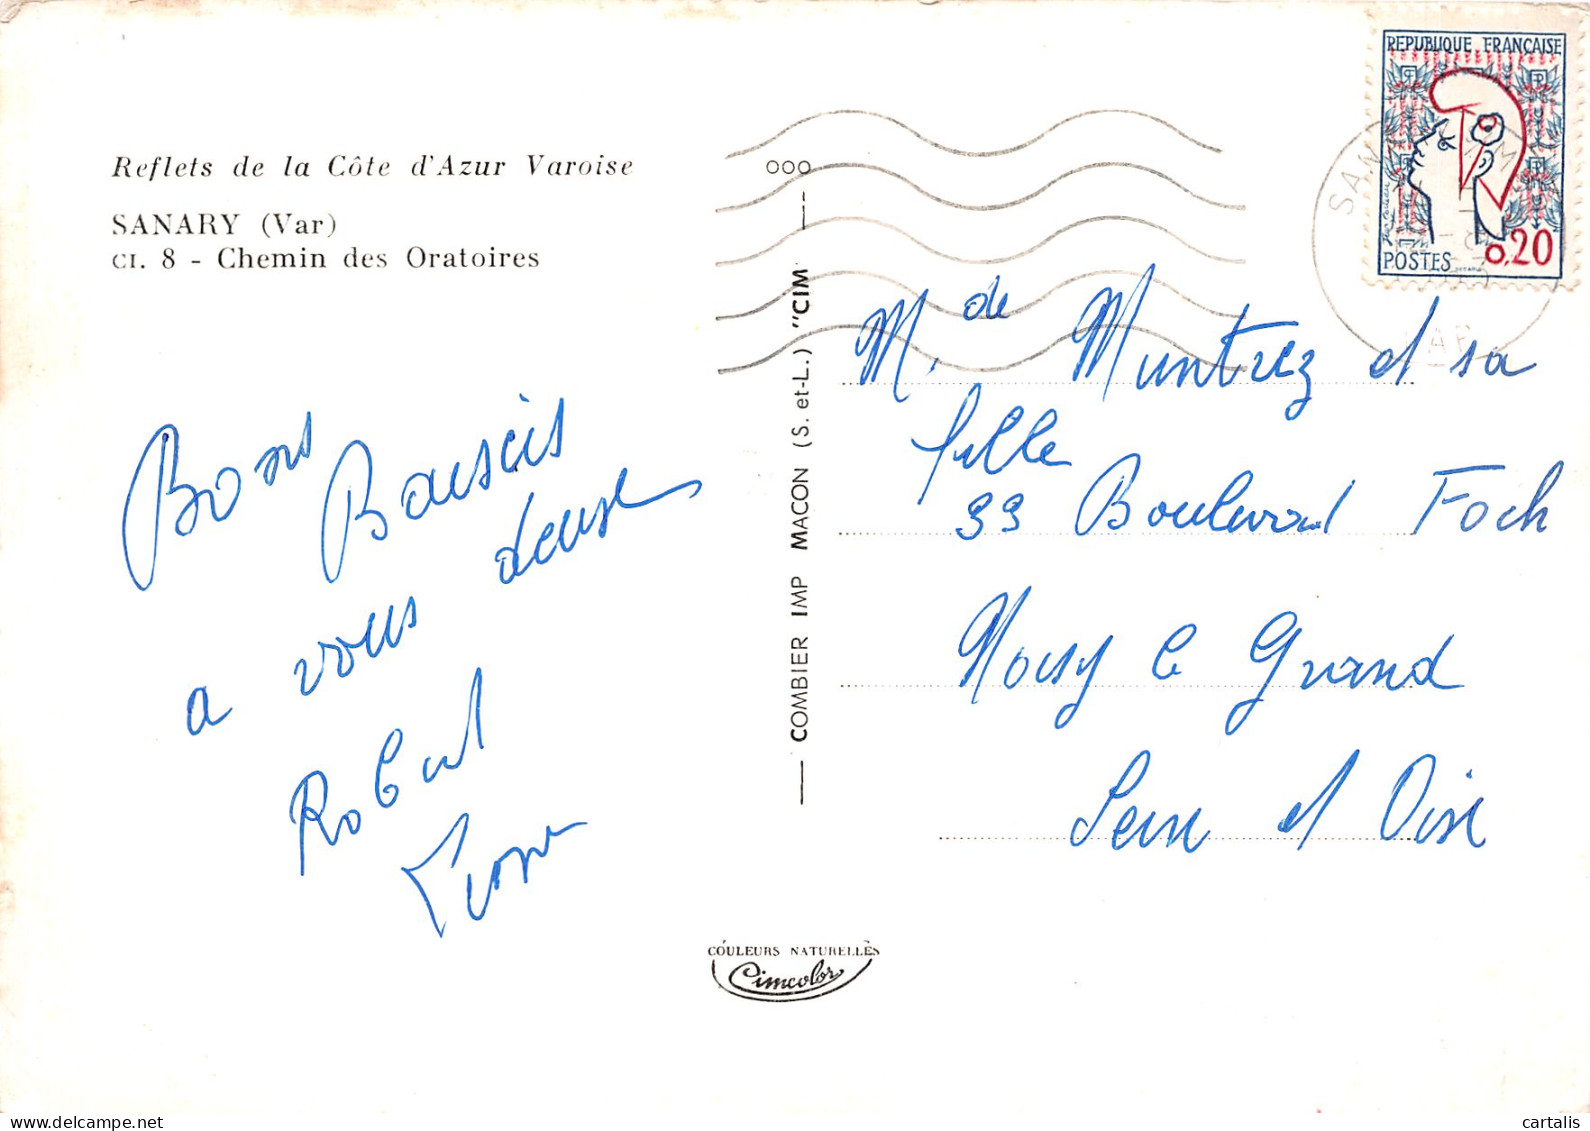 Reflets de la Côte d'Azur Varoise
SANARY (Var)
CI. 8 - Chemin des Oratoires
Bons Baisers
a vous deux
Robert
COMBIER IMP MACON (S. et-L.) "CIM
COULEURS NATURELLES
Cimcolor
REPUBLIQUE FRANÇAISE
POSTES 0,20
SAN
VAR
M. de Muntrez et sa
fille
33 Boulevard Foch
Noisy le Grand
Seine et Oise
delcampe.net
cartalis